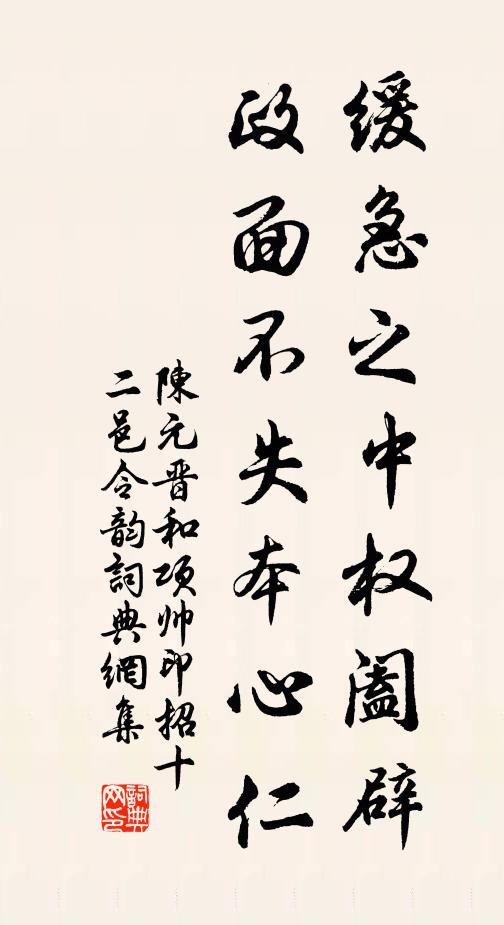 缓急之中权阖辟
政面不失本心仁
陳元晋和项帅印招十
二邑令韵詞典網集
詞典网印